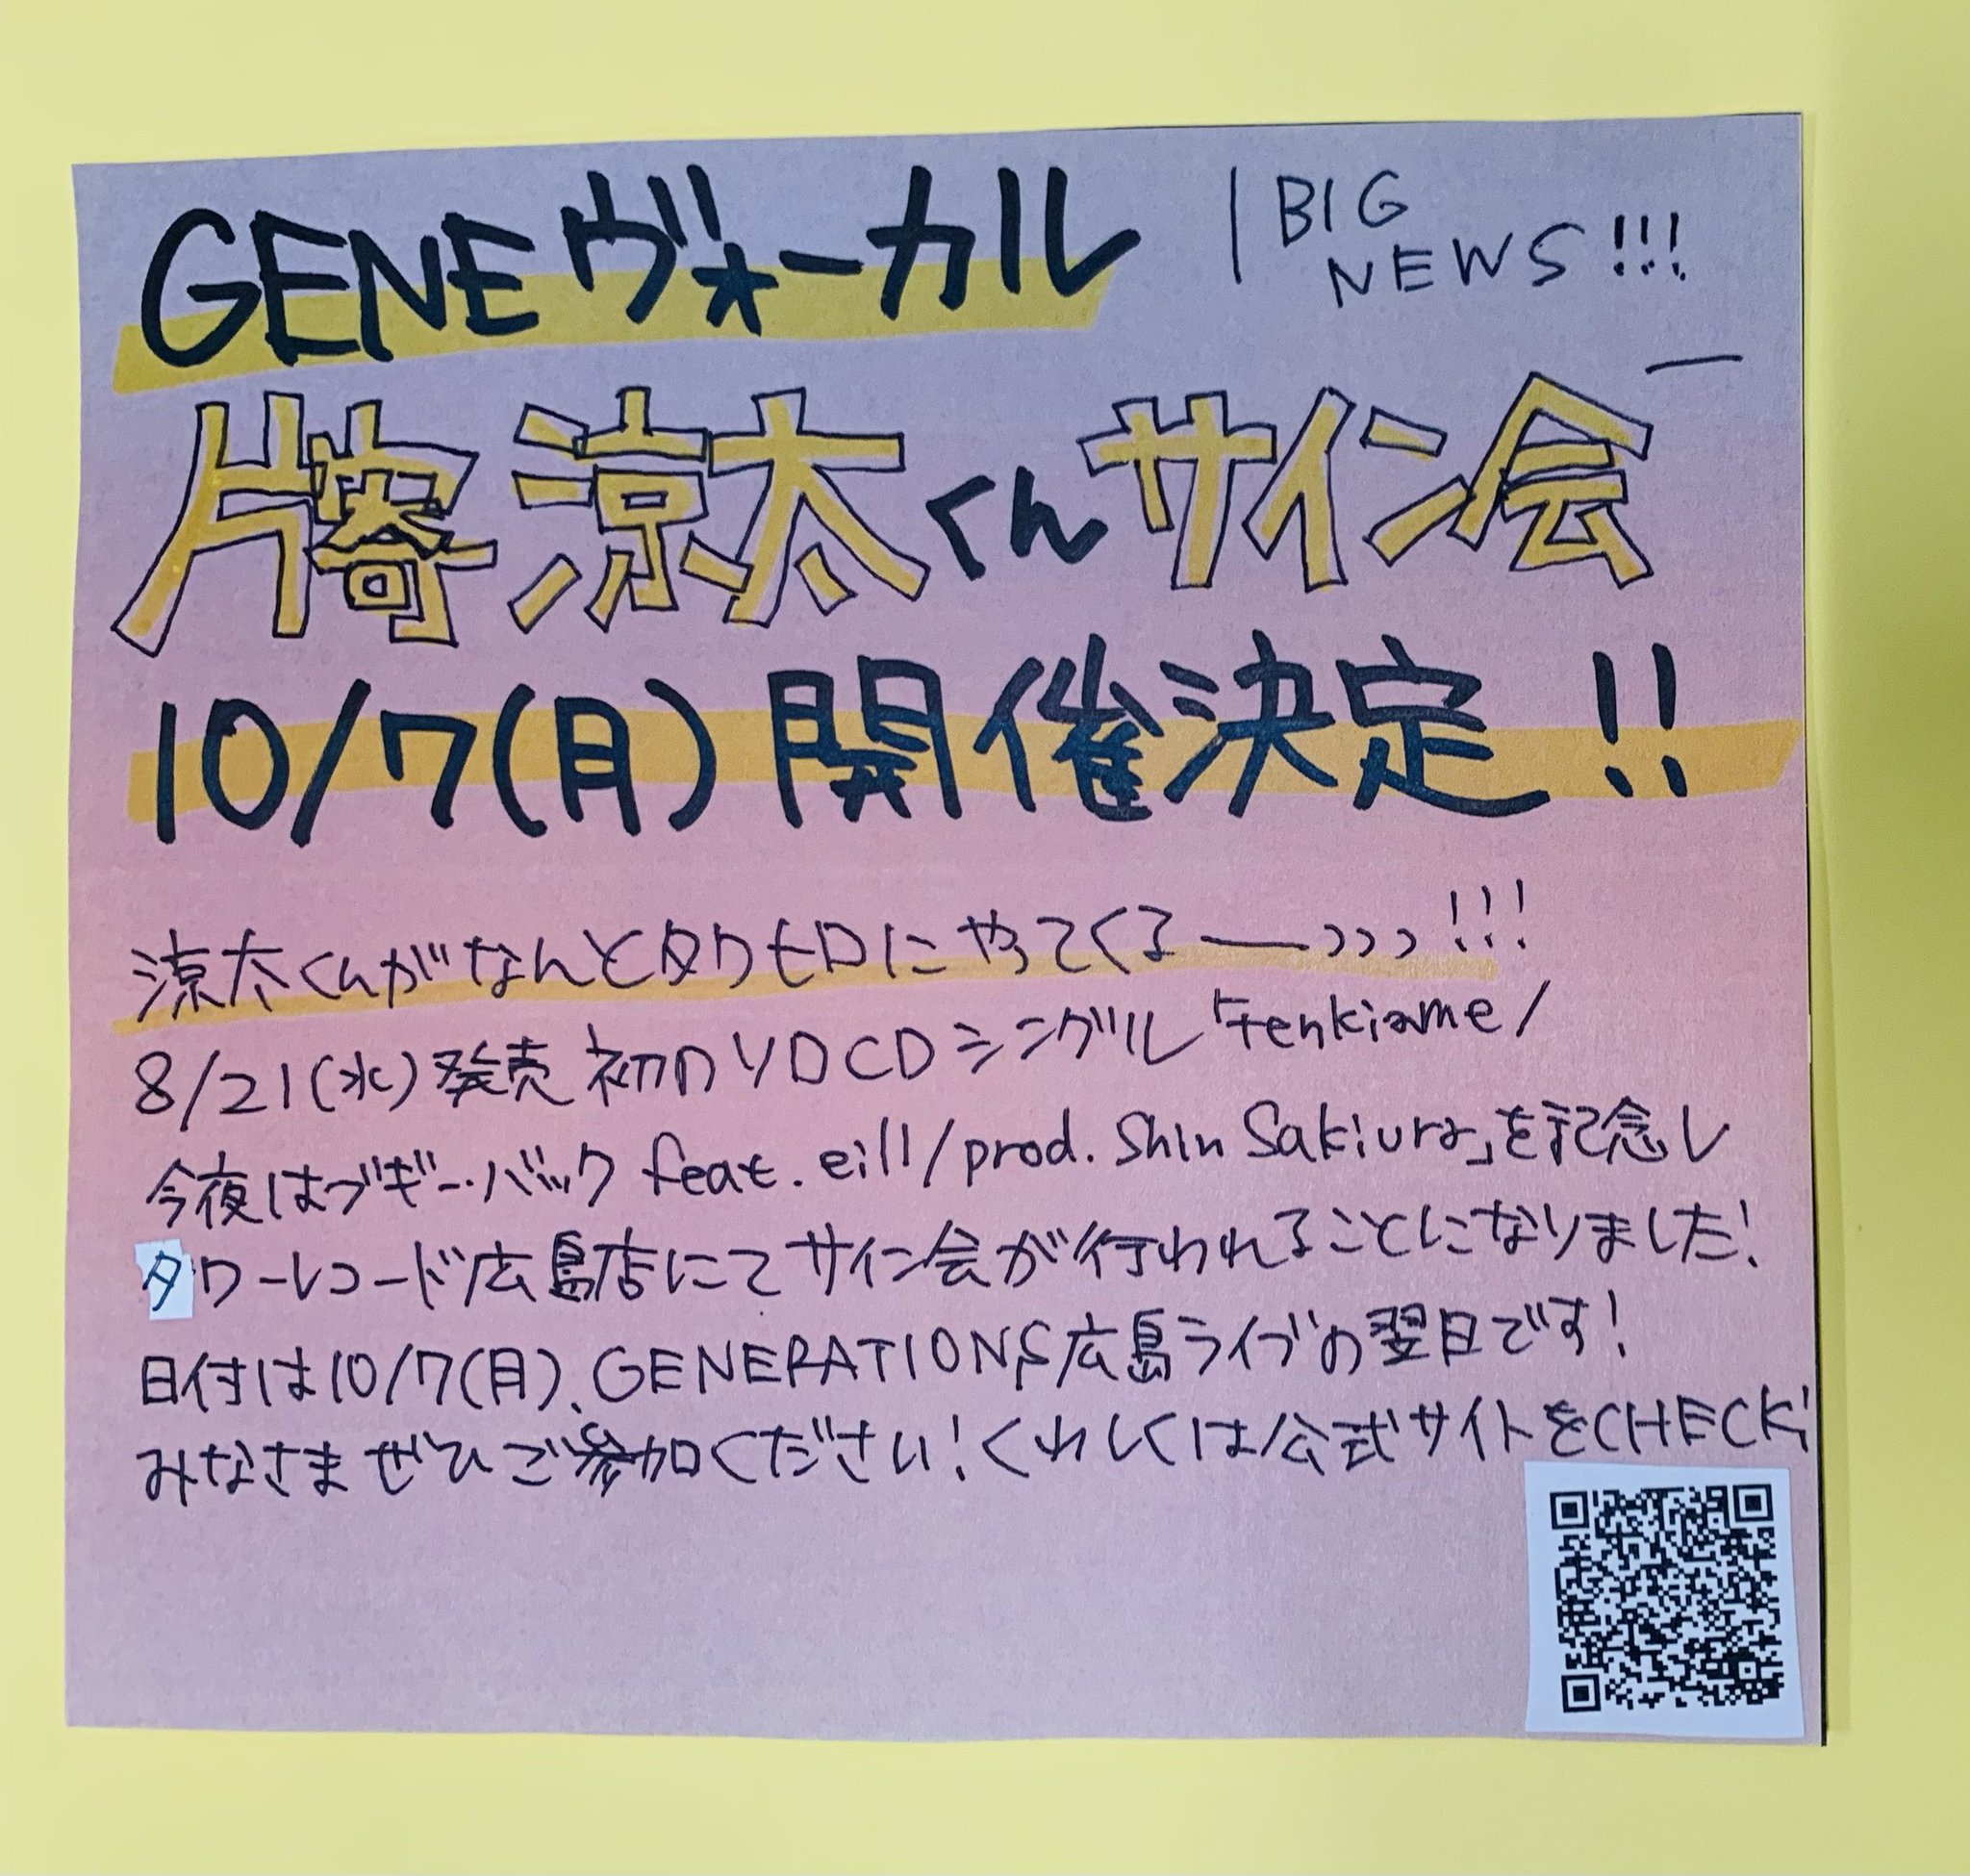 GENEヴォーカル
BIG
NEWS!!!
片寄涼太くんサイン会
10/7(月)開催決定!!
涼太くんがなんとタワヒロにやってくるーーー>>>!!!
8/21(水)発売 初ソロCDシングル「tenkiame/
今夜はブギー・バック feat. eill/prod. Shin Sakiura」を記念し
タワーレコード広島店にてサイン会が行われることになりました!
日付は10/7(月)、GENERATIONS広島ライブの翌日です!
みなさまぜひご参加ください!くわしくは公式サイトをCHECK!